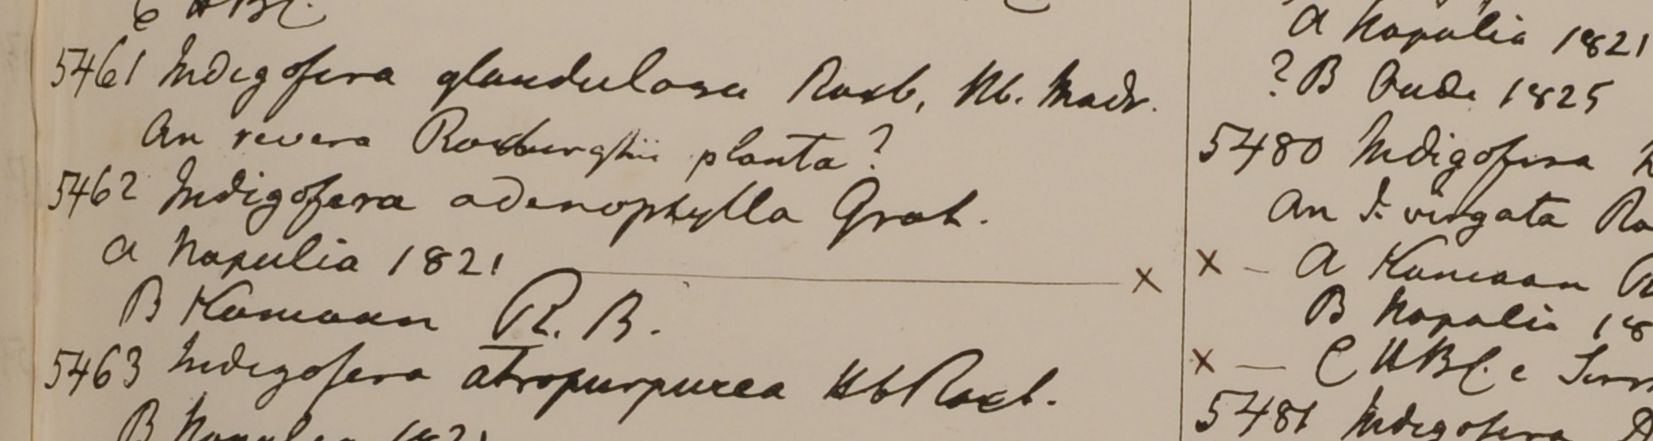 C HBC.
5461 Indigofera glandulosa Roxb, Hb. Madr.
An revera Roxburghii planta?
5462 Indigofera adenophylla Grah.
a Napulia 1821 x
B Kamaon R. B.
5463 Indigofera atropurpurea Hb Roxb.
B 1821
a Napalia 1821
? B Oude 1825
5480 Indigofera
An I. virgata Ro
x - a Kamaon R
B Napalia 18
x - C HBC. e
5481 Indigofera